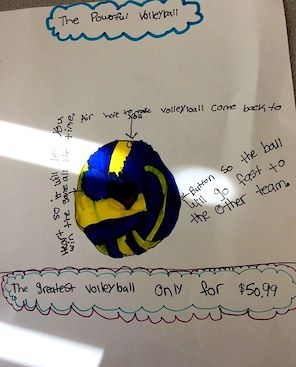 The Powerful Volleyball
Air hole to make volleyball come back to
you
Heart so it will let you
win the game all the time.
Button so the ball
will go fast to
the other team.
The greatest Volleyball Only for $50.99